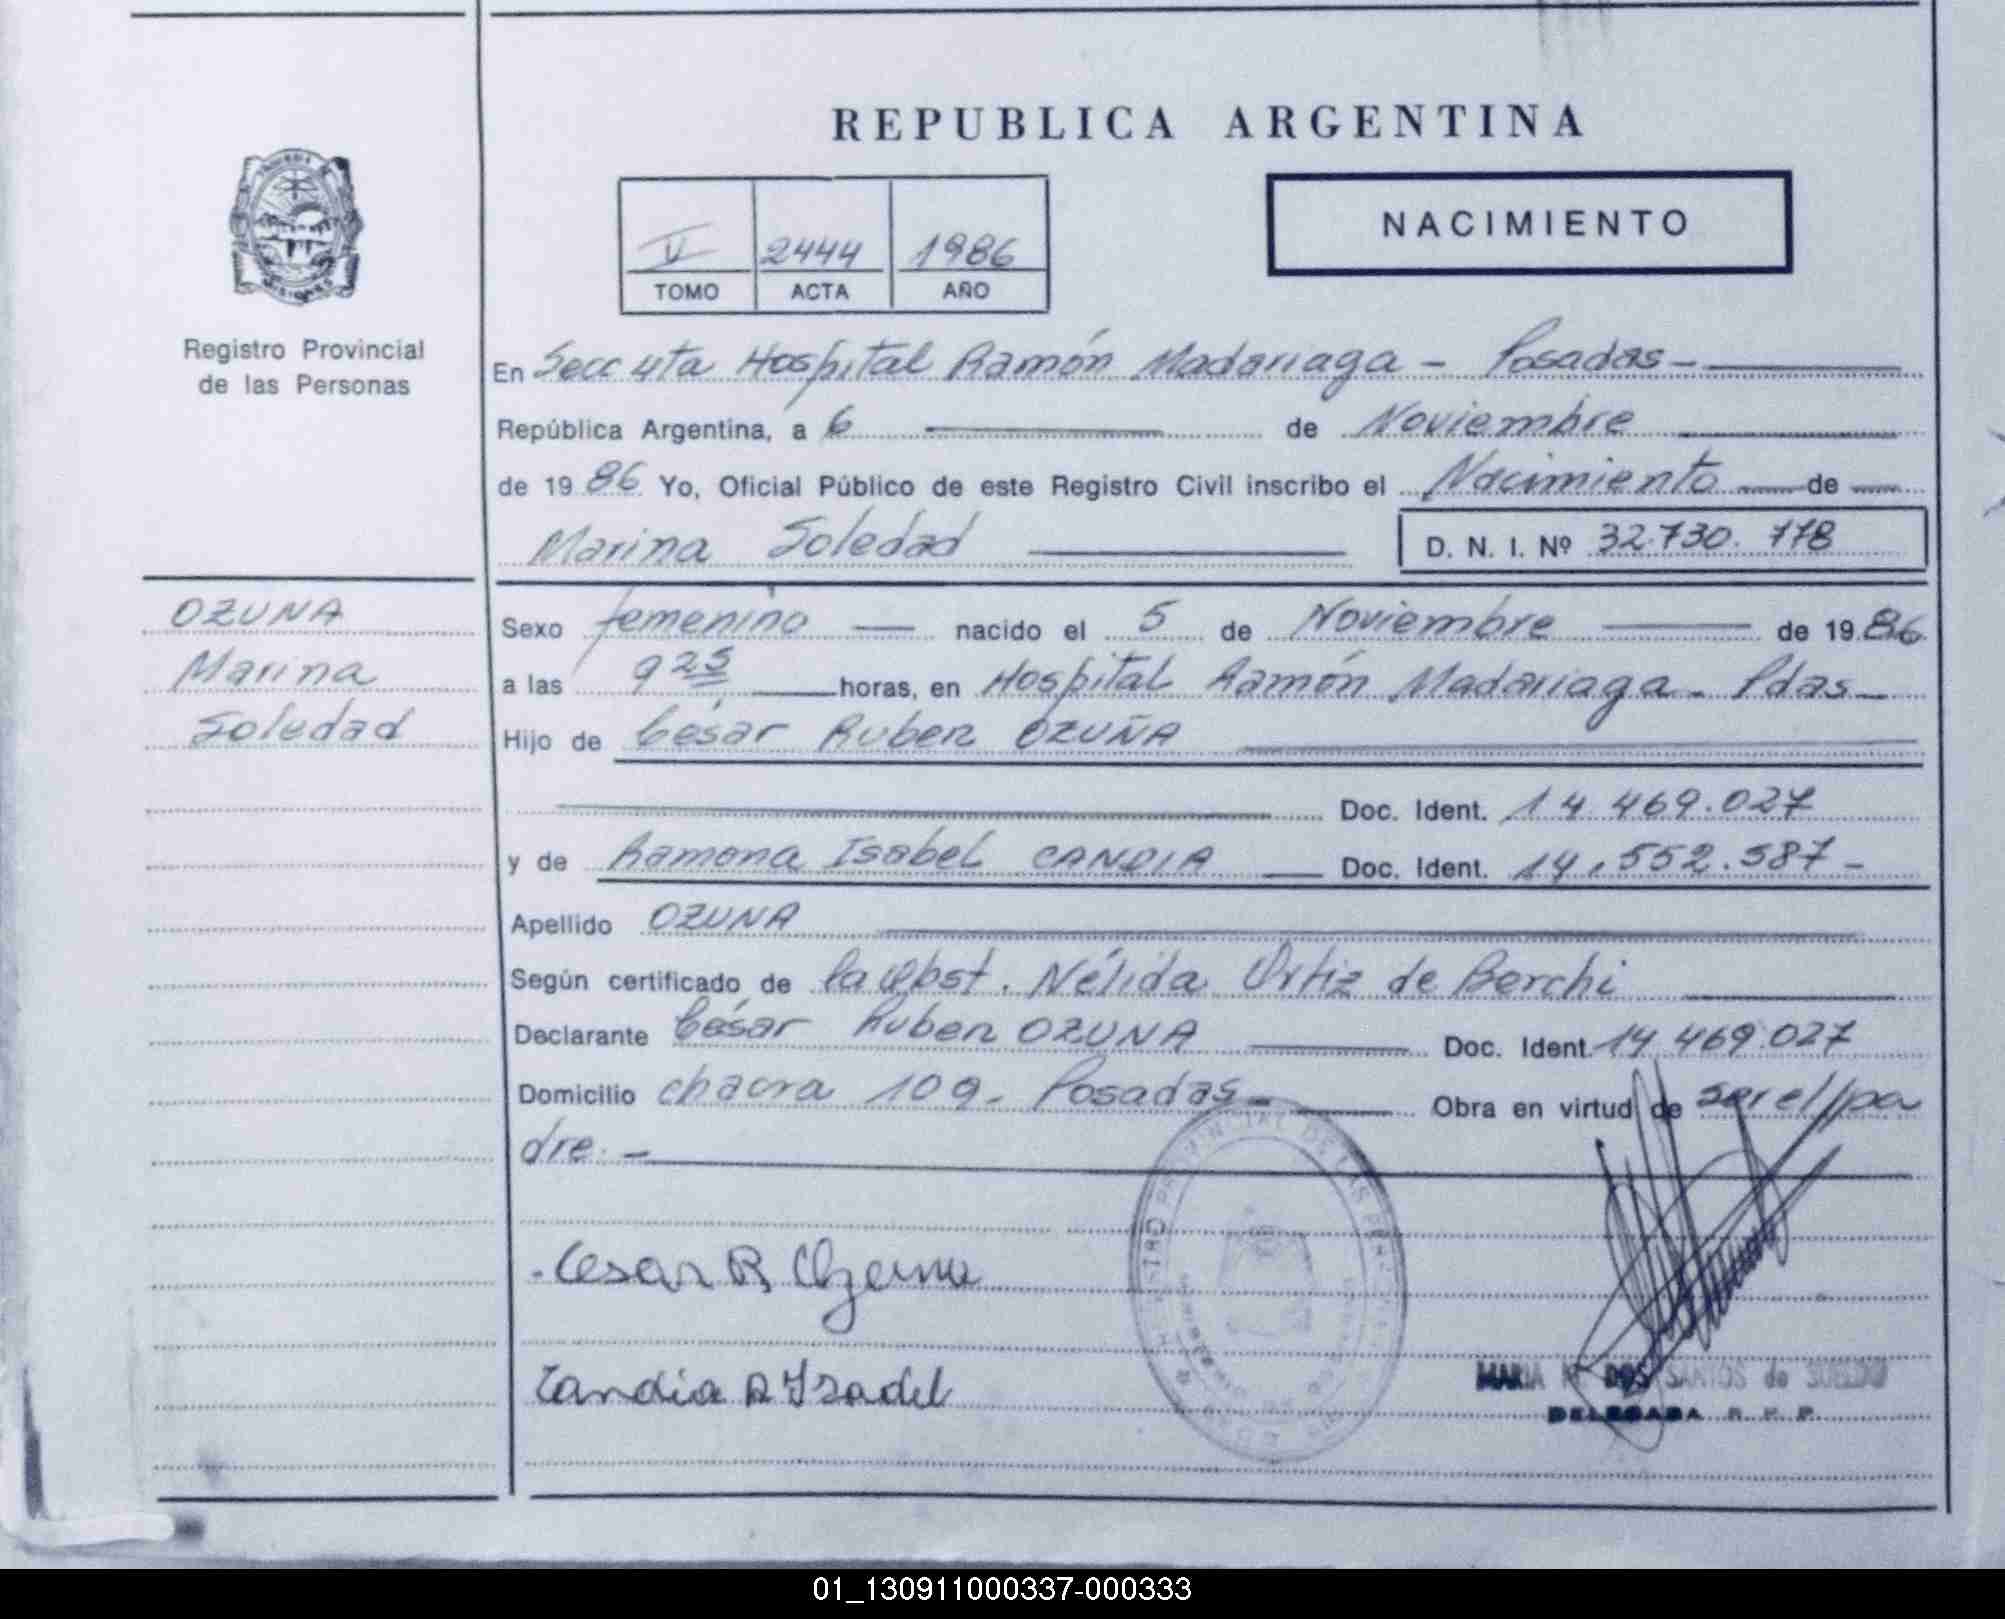 REPUBLICA ARGENTINA
NACIMIENTO
V 2444 1986
TOMO ACTA AÑO
Registro Provincial
de las Personas
En Secc 4ta Hospital Ramón Madariaga - Posadas -
República Argentina, a 6 de Noviembre
de 1986 Yo, Oficial Público de este Registro Civil inscribo el Nacimiento de
Marina Soledad D. N. I. Nº 32.730.778
OZUNA
Marina
Soledad
Sexo femenino nacido el 5 de Noviembre de 1986
a las 9 25 horas, en Hospital Ramón Madariaga - Pdas -
Hijo de César Ruben OZUÑA
Doc. Ident. 14 469.027
y de Ramona Isabel CANDIA Doc. Ident. 14.552.587 -
Apellido OZUNA
Según certificado de la Obst. Nélida Ortiz de Berchi
Declarante César Ruben OZUNA Doc. Ident. 14 469.027
Domicilio chacra 109 - Posadas - Obra en virtud de ser el pa
dre. -
Cesar R Ozuna
Candia R Isabel
MARIA DOS SANTOS de SUELDO
DELEGADA R. P. P.
01_130911000337-000333